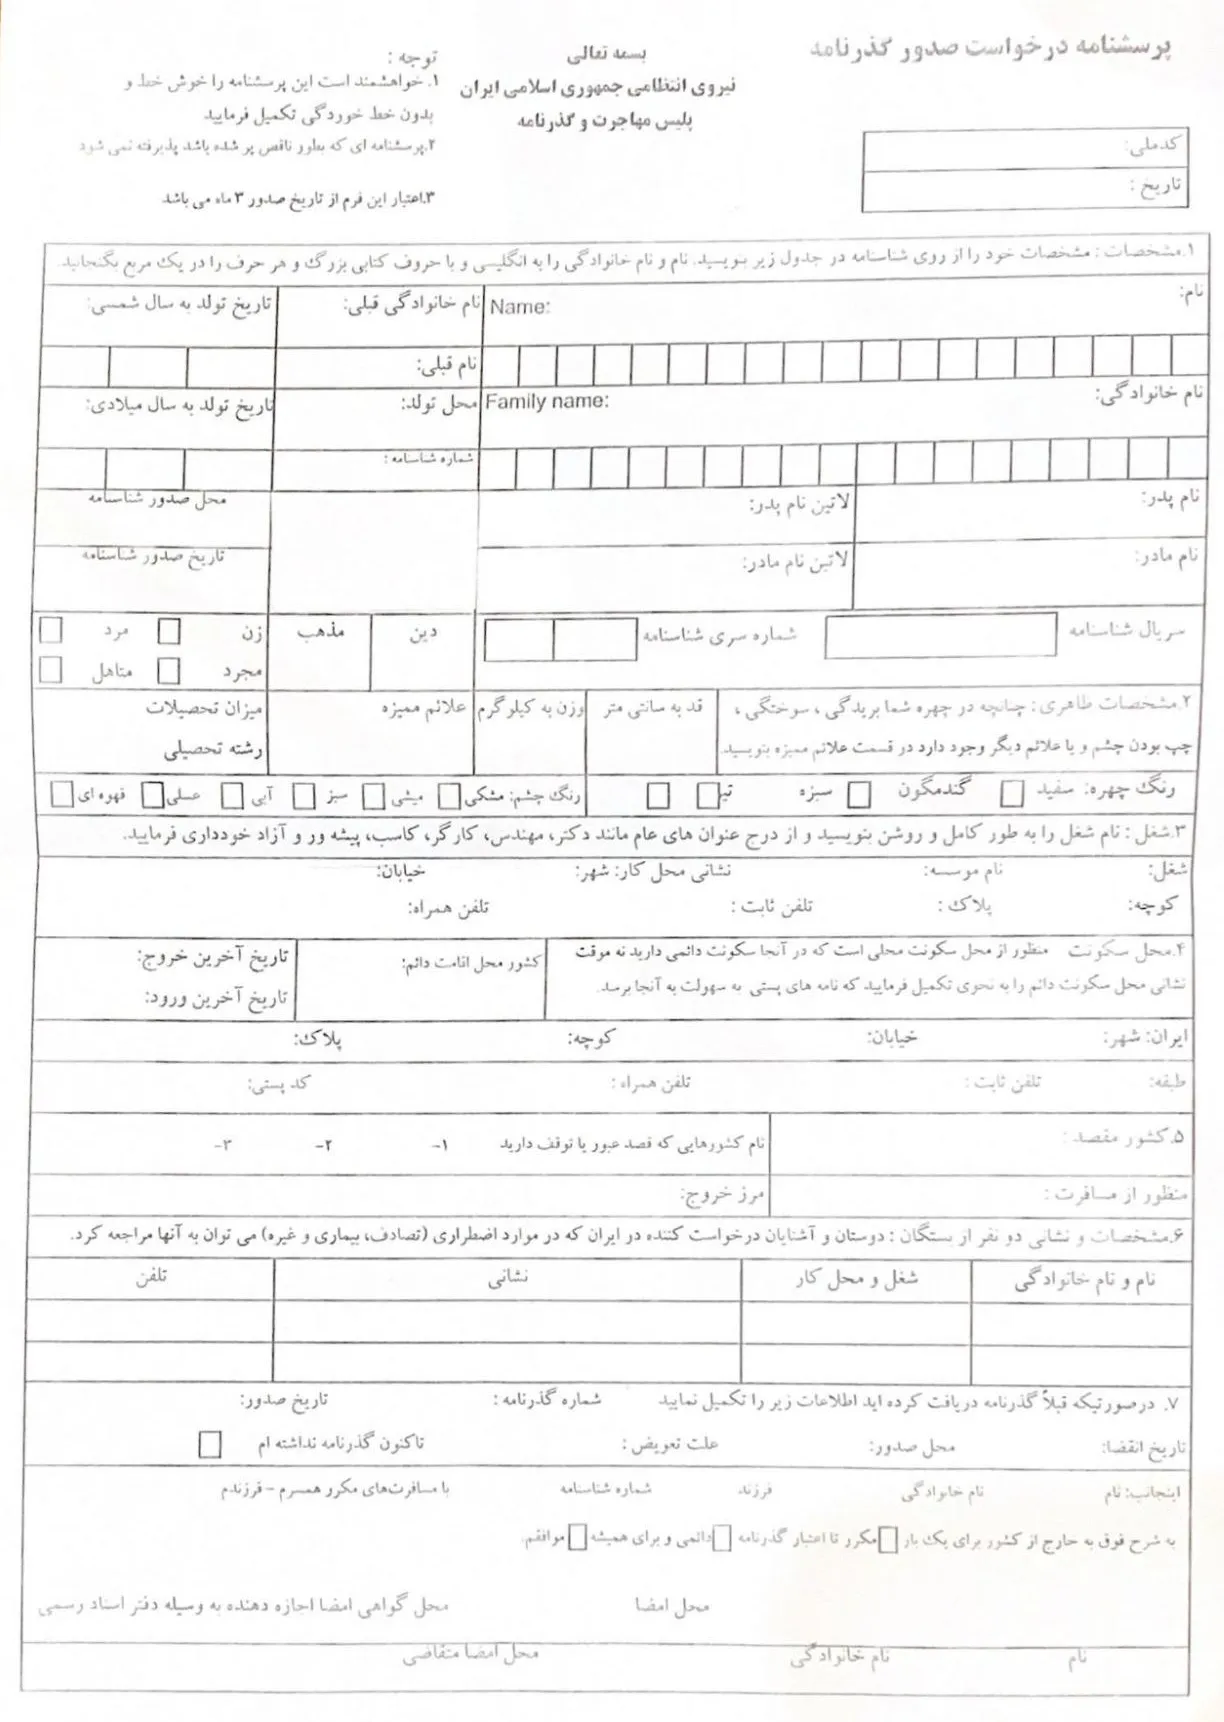 پرسشنامه درخواست صدور گذرنامه
بسمه تعالی
نیروی انتظامی جمهوری اسلامی ایران
پلیس مهاجرت و گذرنامه
توجه :
۱. خواهشمند است این پرسشنامه را خوش خط و
بدون خط خوردگی تکمیل فرمایید
۲.پرسشنامه ای که بطور ناقص پر شده باشد پذیرفته نمی شود
۳.اعتبار این فرم از تاریخ صدور ۳ ماه می باشد
کدملی:
تاریخ :
۱.مشخصات : مشخصات خود را از روی شناسنامه در جدول زیر بنویسید. نام و نام خانوادگی را به انگلیسی و با حروف کتابی بزرگ و هر حرف را در یک مربع بگنجانید.
نام: Name: نام خانوادگی قبلی: تاریخ تولد به سال شمسی:
نام قبلی:
نام خانوادگی: Family name: محل تولد: تاریخ تولد به سال میلادی:
شماره شناسنامه :
نام پدر: لاتین نام پدر: محل صدور شناسنامه
نام مادر: لاتین نام مادر: تاریخ صدور شناسنامه
سریال شناسنامه شماره سری شناسنامه دین مذهب زن مرد
مجرد متاهل
۲.مشخصات ظاهری : چنانچه در چهره شما بریدگی ، سوختگی ، قد به سانتی متر وزن به کیلو گرم علائم ممیزه میزان تحصیلات
چپ بودن چشم و یا علائم دیگر وجود دارد در قسمت علائم ممیزه بنویسید. رشته تحصیلی
رنگ چهره: سفید گندمگون سبزه رنگ چشم: مشکی میشی سبز آبی عسلی قهوه ای
۳.شغل : نام شغل را به طور کامل و روشن بنویسید و از درج عنوان های عام مانند دکتر، مهندس، کارگر، کاسب، پیشه ور و آزاد خودداری فرمایید.
شغل: نام موسسه: نشانی محل کار: شهر: خیابان:
کوچه: پلاک : تلفن ثابت : تلفن همراه:
۴.محل سکونت منظور از محل سکونت محلی است که در آنجا سکونت دائمی دارید نه موقت کشور محل اقامت دائم: تاریخ آخرین خروج:
نشانی محل سکونت دائم را به نحوی تکمیل فرمایید که نامه های پستی به سهولت به آنجا برسد. تاریخ آخرین ورود:
ایران: شهر: خیابان: کوچه: پلاک:
طبقه: تلفن ثابت : تلفن همراه : کد پستی:
۵.کشور مقصد : نام کشورهایی که قصد عبور یا توقف دارید ۱- ۲- ۳-
منظور از مسافرت : مرز خروج:
۶.مشخصات و نشانی دو نفر از بستگان : دوستان و آشنایان درخواست کننده در ایران که در موارد اضطراری (تصادف، بیماری و غیره) می توان به آنها مراجعه کرد.
نام و نام خانوادگی شغل و محل کار نشانی تلفن
۷. درصورتیکه قبلاً گذرنامه دریافت کرده اید اطلاعات زیر را تکمیل نمایید شماره گذرنامه : تاریخ صدور:
تاریخ انقضا: محل صدور: علت تعویض : تاکنون گذرنامه نداشته ام
اینجانب: نام نام خانوادگی فرزند شماره شناسنامه با مسافرت‌های مکرر همسرم – فرزندم
به شرح فوق به خارج از کشور برای یک بار مکرر تا اعتبار گذرنامه دائمی و برای همیشه موافقم.
محل امضا محل گواهی امضا اجازه دهنده به وسیله دفتر اسناد رسمی
نام نام خانوادگی محل امضا متقاضی